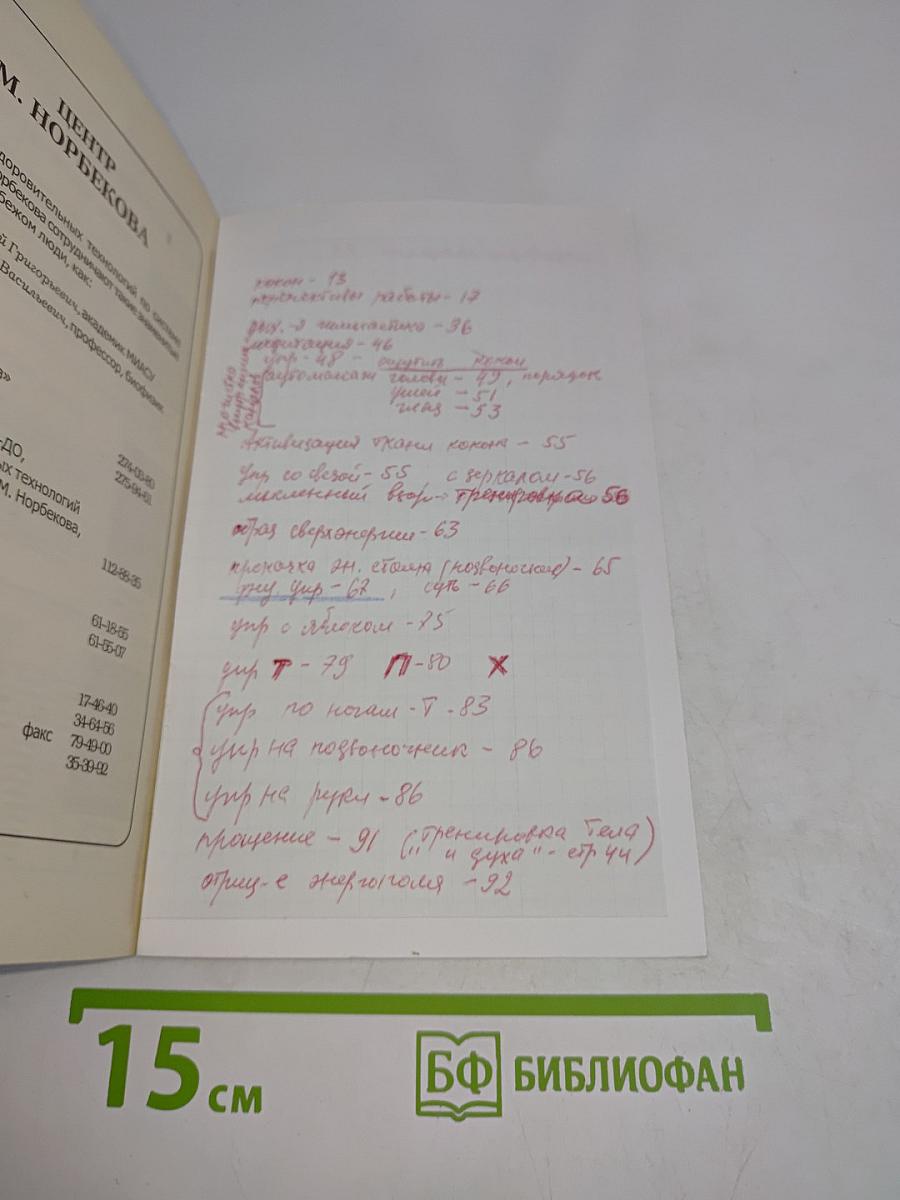 ЦЕНТР
М. НОРБЕКОВА
доровительных технологий по системе
орбекова сотрудничают такие знаменитые
бежом люди, как:
й Григорьевич, академик МИАСУ
Васильевич, профессор, биофизик
а»
-ДО,
ых технологий
М. Норбекова,
274-03-80
275-94-61
112-88-35
61-18-55
61-55-07
17-46-40
34-64-56
факс 79-49-00
35-39-92
кокон - 13
перспективы работы - 17
дых.-я гимнастика - 36
медитация - 46
упр - 48 - ощутить кокон
аутомассаж головы - 49, порядок
ушей - 51
глаз - 53
Активизация ткани кокона - 55
упр со свечой - 55 с зеркалом - 56
мысленный взор - тренировка 56
образ сверхэнергии - 63
прокачка эн. столба (позвоночник) - 65
упр - 67, суть - 66
упр с яблоком - 75
упр Т - 79 П - 80 Х
упр по ногам - Т - 83
упр на позвоночник - 86
упр на руки - 86
прощение - 91 ("тренировка тела
и духа" - стр 44)
отриц-е энергополя - 92
15 см
БФ БИБЛИОФАН